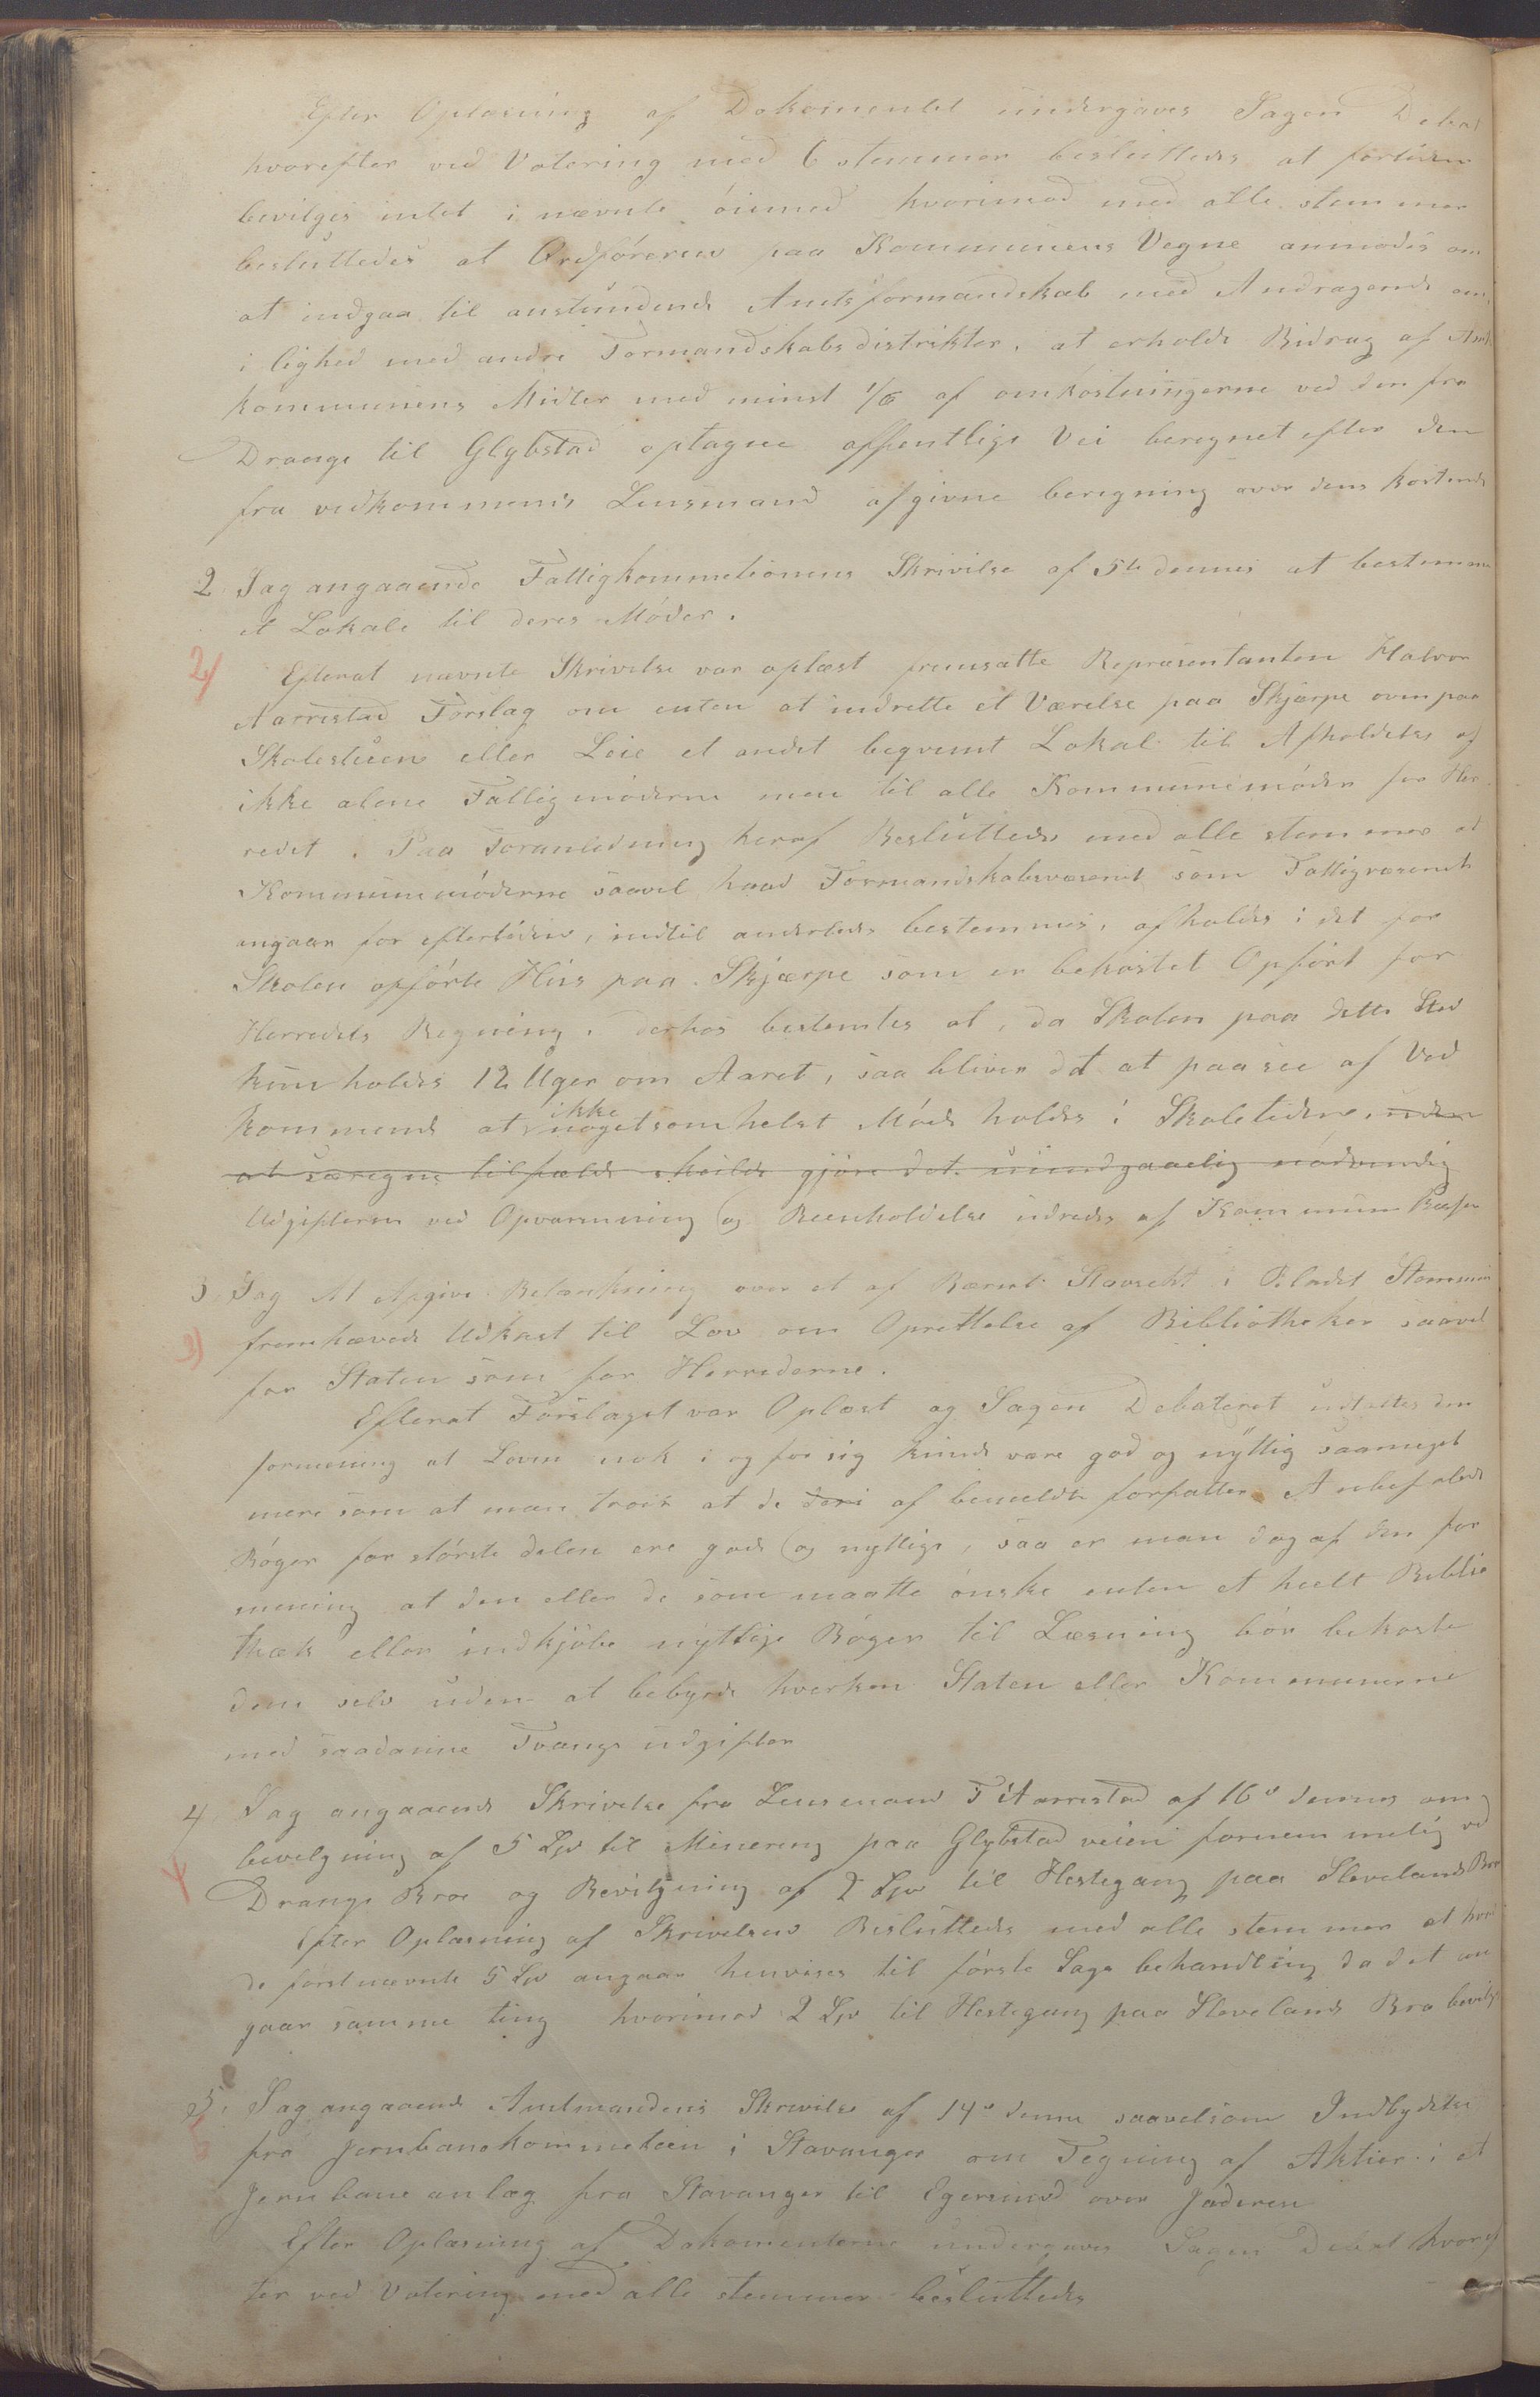 Efter Oplæsning af Dokomentet undergaves Sagen Debat
hvorefter ved Votering med 6 stemmer besluttedes at fortiden
bevilges intet i nævnte öiemed hvorimod med alle stemmer
besluttedes at Ordföreren paa Kommunens Vegne anmodes om
at indgaa til anstundende Amtsformandskab med Andragende om
i lighed med andre Formandskabsdistrikter, at erholde Bidrag af Amt
kommunens Midler med minst 1/6 af omkostningerne ved den fra
Drange til Glybstad optagne offentlige Vei beregnet efter den
fra vedkommenes Lensmand afgivne beregning over dens kostende
2 Sag angaaende Fattigkommetionens Skrivilse af 5te dennes at bestemme
et Lokale til deres Möder.
2/ Efterat nævnte Skrivelse var oplæst fremsatte Repræsentanten Halvor
Aarrestad Forslag om enten at indrette et Værelse paa Skjærpe ovenpaa
Skolestuen eller Leie et andet beqvemt Lokal til Afholdelse af
ikke alene Fattigmöderne men til alle Kommunemöder for Her
redet. Paa Foranledning heraf Besluttedes med alle stemmer at
Kommunemöderne saavel hvad Formandskabsvæsenet som Fattigvæsenet
angaar for eftertiden, indtil anderledes bestemmes, afholdes i det for
Skolen opförte Hus paa Skjærpe som er bekostet Opfört for
Herredets Regning. derhos bestemtes at, da Skolen paa dette Sted
kun holdes 12 Uger om Aaret, saa bliver det at paasee af Ved
kommende at ikke nogetsomhelst Möde holdes i Skoletiden, uden
at særegne tilfælde skulde gjöre det uundgaaelig nödvendig
Udgifterne ved Opvarmning og Reenholdelse udredes af Kommune Kassen
3 Sag At Afgive Betænkning over et af Bærent Stavseth i Bladet Stemmen
3) fremhævede Udkast til Lov om Oprettelse af Bibliotheker saavel
for Staten som for Herrederne.
Efterat Forslaget var Oplæst og Sagen Debateret udtaltes den
formening at Loven nok i og for sig kunde være god og nyttig saameget
mere som at man troer at de deri af bemeldte forfatter Anbefalede
Böger for störste delen ere gode og nyttige, saa er man dog af den for
mening at den eller de som maatte önske enten et heelt Biblio
thæk eller indkjöbe nyttige Böger til Læsning bör bekoste
dem selv uden at bebyrde hverken Staten eller Kommunerne
med saadanne Tvangs udgifter
4 Sag angaaende Skrivelse fra Lensmand T Aarrestad af 16de dennes om
bevilgning af 5 Spd til Minering paa Glybstad veien fornemmelig ved
4 Drange Bro og Bevilgning af 2 Spd til Hestegang paa Slevelands Bro
Efter Oplæsning af Skrivelsen Besluttedes med alle stemmer at hvad
de först nævnte 5 Spd angaar henvises til förste Sags behandling da det an
gaar samme ting hvorimod 2 Spd til Hestegang paa Slevelands Bro bevilges
5. Sag angaaende Amtmandens Skrivelse af 14de denne saavelsom Indbydelse
5 fra Jernbanekommeteen i Stavanger om Tegning af Aktier i et
Jernbane anlæg fra Stavanger til Egersund over Jæderen
Efter Oplæsning af Dokomenterne undergaves Sagen Debat hvoref
ter ved Votering med alle stemmer besluttedes